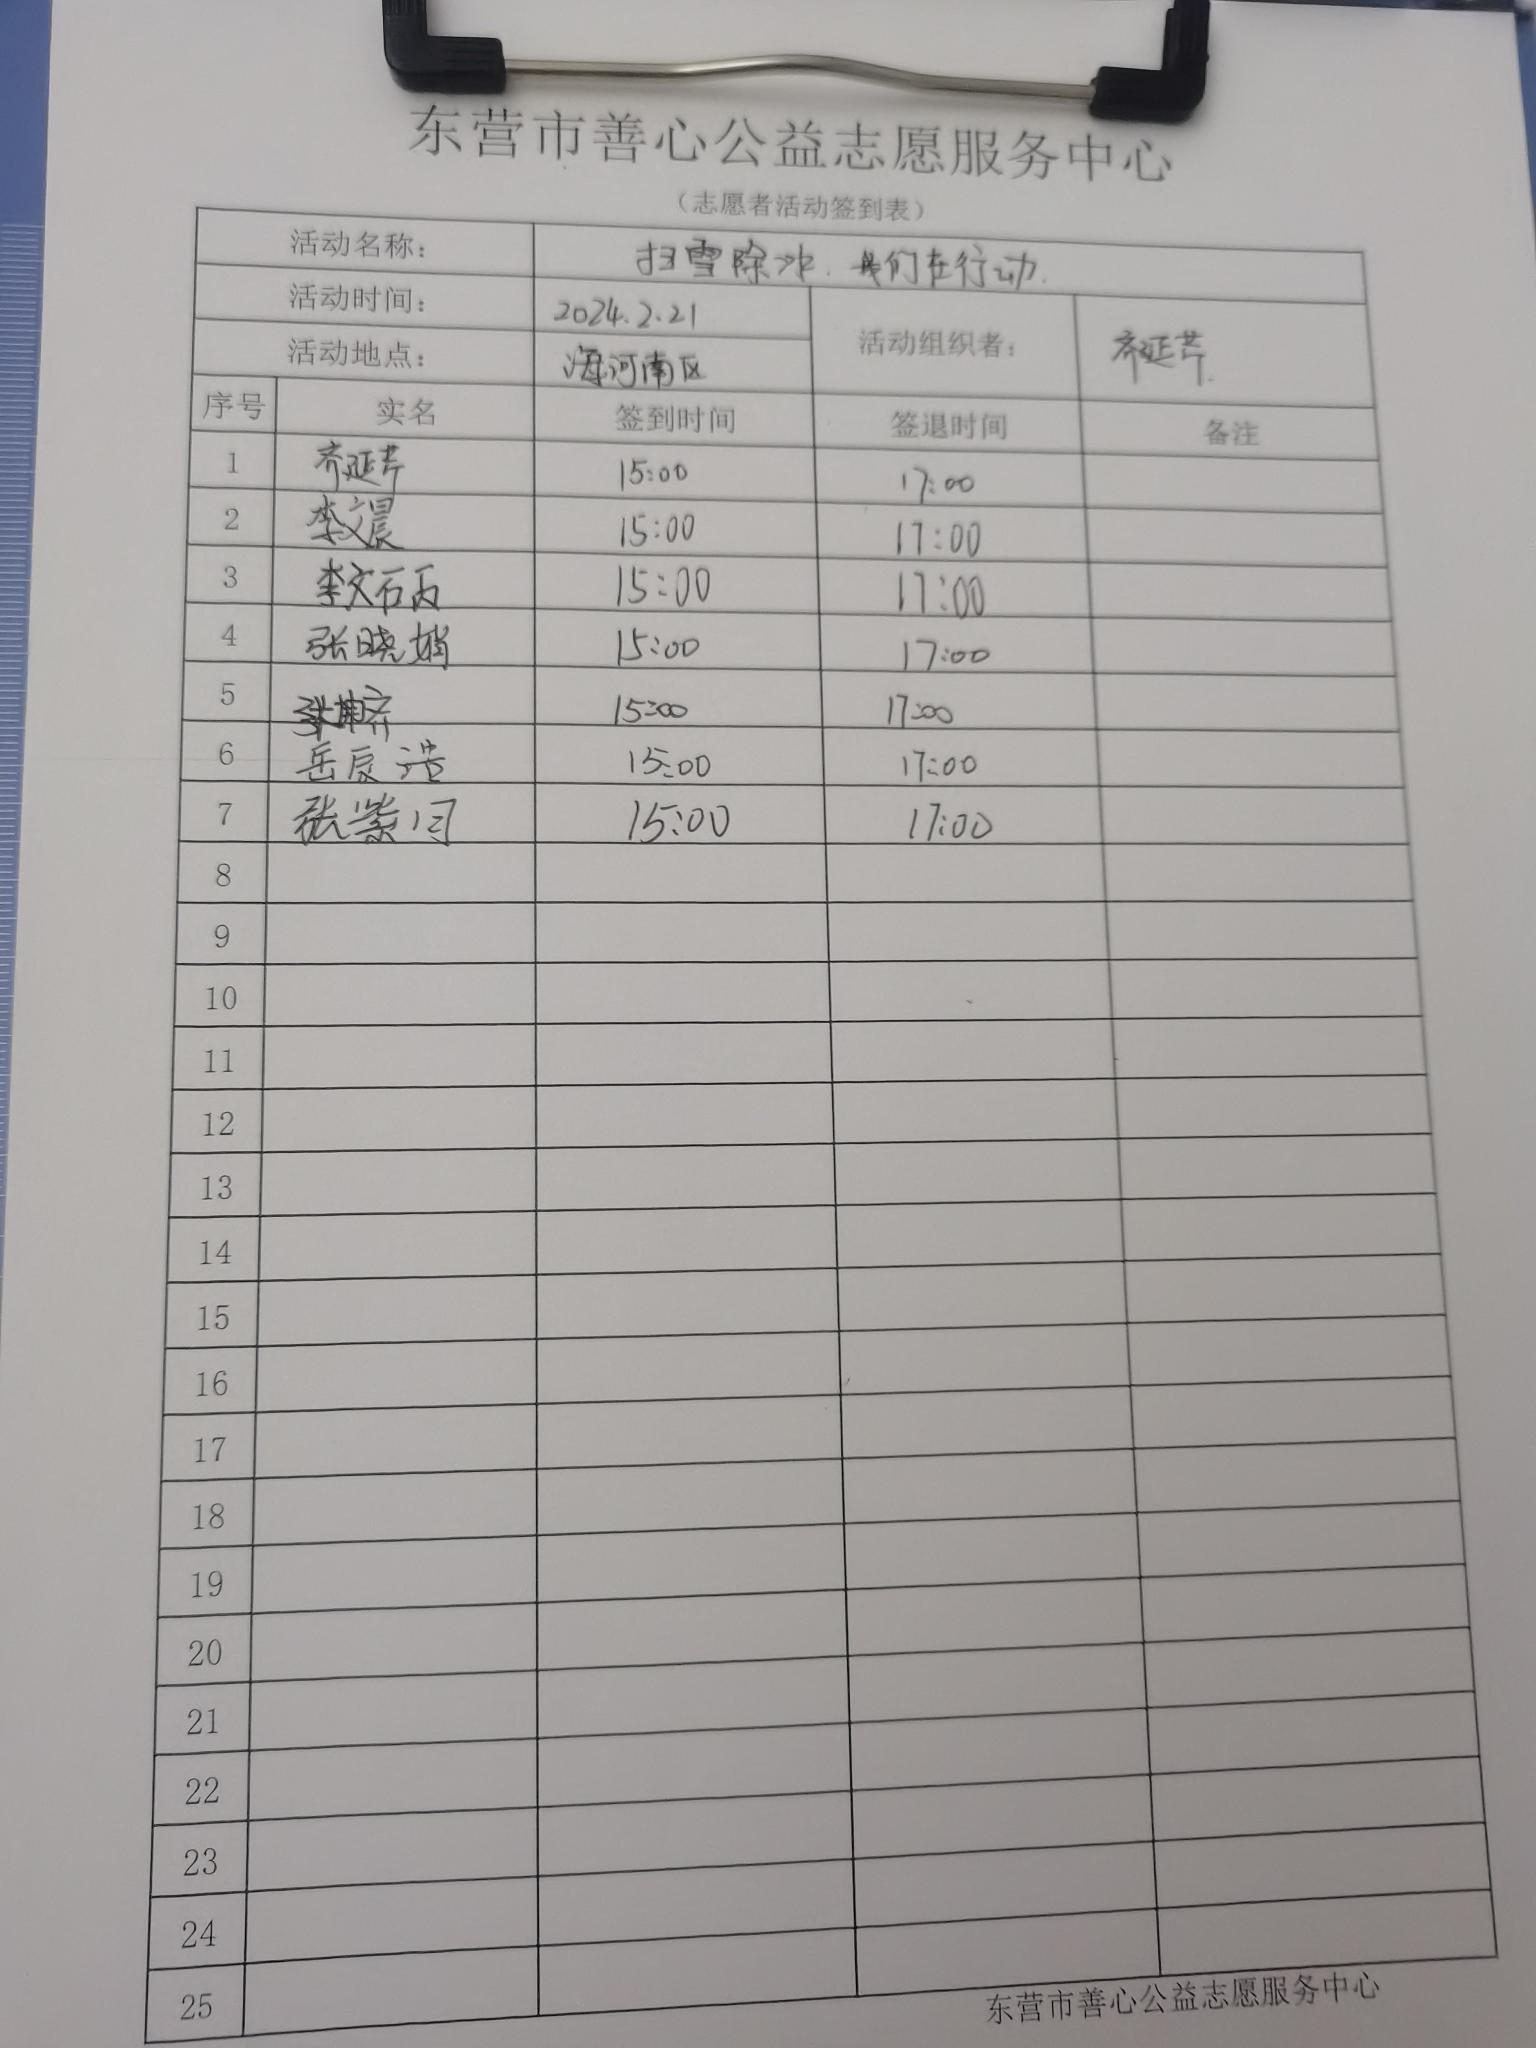 东营市善心公益志愿服务中心
（志愿者活动签到表）
活动名称： 扫雪除冰.我们在行动.
活动时间： 2024.2.21 活动组织者： 齐延芹.
活动地点： 海河南区
序号 实名 签到时间 签退时间 备注
1 齐延芹 15:00 17:00
2 李文晨 15:00 17:00
3 李文石丙 15:00 17:00
4 张晓娟 15:00 17:00
5 15:00 17:00
6 岳辰浩 15:00 17:00
7 张紫同 15:00 17:00
8
9
10
11
12
13
14
15
16
17
18
19
20
21
22
23
24
25
东营市善心公益志愿服务中心